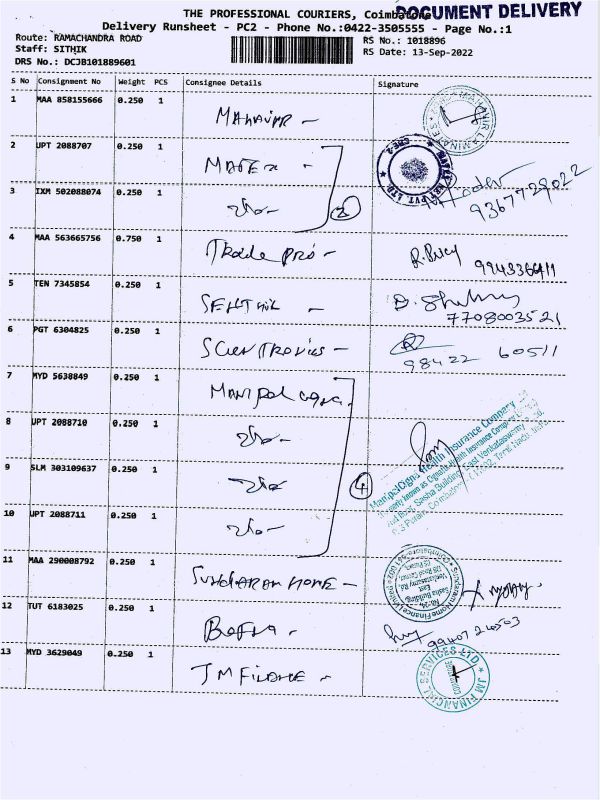 THE PROFESSIONAL COURIERS, Coimbatore
DOCUMENT DELIVERY
Delivery Runsheet - PC2 - Phone No.:0422-3505555 - Page No.:1
Route: RAMACHANDRA ROAD
RS No.: 1018896
Staff: SITHIK
RS Date: 13-Sep-2022
DRS No.: DCJB101889601
S No Consignment No Weight PCS Consignee Details Signature
1 MAA 858155666 0.250 1 MAHAVIR -
2 UPT 2088707 0.250 1
3 IXM 502088074 0.250 1 -do-
2
9367729022
4 MAA 563665756 0.750 1 Trade Pro -
5 TEN 7345854 0.250 1 SENTHIL -
7708003521
6 PGT 6304825 0.250 1 Scientronics -
98422 60511
7 MYD 5638849 0.250 1 Manipal cigna.
8 UPT 2088710 0.250 1 -do-
ManipalCigna Health Insurance Company
9 SLM 303109637 0.250 1 -do-
4
10 UPT 2088711 0.250 1 -do-
11 MAA 290008792 0.250 1 SUNDARAM HOME -
Sundaram Home Finance
12 TUT 6183025 0.250 1
13 MYD 3629049 0.250 1 JM FINANCE -
JM FINANCIAL SERVICES LTD